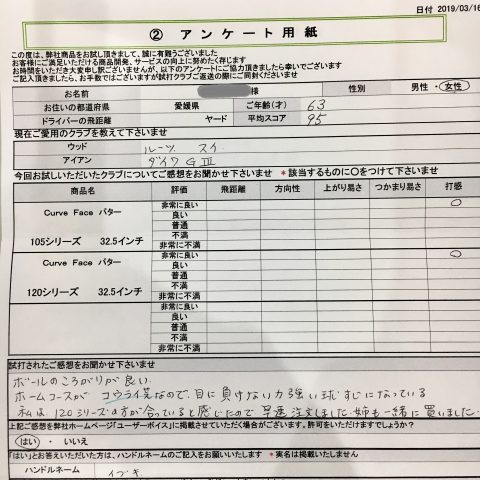 日付 2019/03/16
② アンケート用紙
この度は、弊社商品をお試し頂きまして、誠に有難うございました
お客様にご満足いただける商品開発、サービスの向上に努めたく存じます
お時間をいただき大変申し訳ございませんが、以下のアンケートにご協力頂きましたら幸いでございます
ご記入頂きましたら、お手数ではございますが試打クラブご返送の際にご同封くださいませ
お名前 様 性別 男性 ・ 女性
お住いの都道府県 愛媛県 ご年齢(才) 63
ドライバーの飛距離 ヤード 平均スコア 95
現在ご愛用のクラブを教えて下さいませ
ウッド ルーツ スイ
アイアン ダイワGⅢ
今回お試しいただいたクラブについてご感想をお聞かせ下さいませ *該当するものに〇をつけて下さいませ
商品名 評価 飛距離 方向性 上がり易さ つかまり易さ 打感
Curve Face パター
105シリーズ 32.5インチ
非常に良い 〇
良い
普通
不満
非常に不満
Curve Face パター
120シリーズ 32.5インチ
非常に良い 〇
良い
普通
不満
非常に不満
非常に良い
良い
普通
不満
非常に不満
試打されたご感想をお聞かせ下さいませ
ボールのころがりが良い
ホームコースがコウライ芝なので、目に負けない力強い球すじになっている
私は、120シリーズの方が合っていると感じたので早速注文しました.姉も一緒に買いました
上記ご感想を弊社ホームページ「ユーザーボイス」に掲載させていただく場合がございます。許可をいただけますでしょうか?
はい ・ いいえ
「はい」とお答えいただいた方は、ハンドルネームのご記入をお願いします *実名は掲載いたしません
ハンドルネーム イブキ